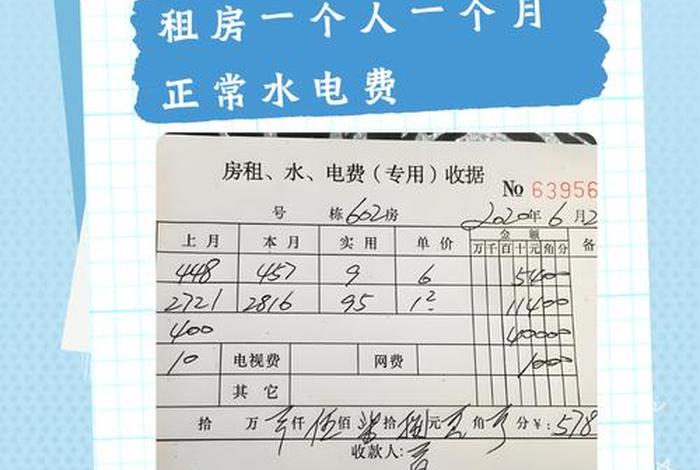 租房一个人一个月
正常水电费
房租、水、电费（专用）收据
No 63956
号 栋 602 房 2020年 6月2
上月 本月 实用 单价 金额 备
万千百十元角分
448 457 9 6 5400
2721 2816 95 1.2 11400
400 40000
10 电视费 网费 1000
其它
拾 万 仟 伍佰 柒拾 捌元 角 分¥: 578
收款人: